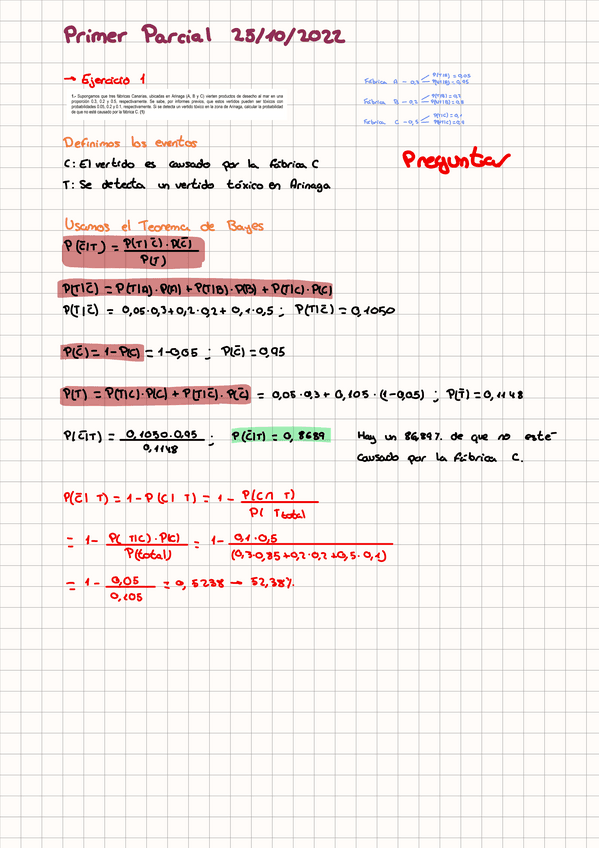 Primer Parcial 25/10/2022
→ Ejercicio 1
1.- Supongamos que tres fábricas Canarias, ubicadas en Arinaga (A, B y C) vierten productos de desecho al mar en una
proporción 0.3, 0.2 y 0.5, respectivamente. Se sabe, por informes previos, que estos vertidos pueden ser tóxicos con
probabilidades 0.05, 0.2 y 0.1, respectivamente. Si se detecta un vertido tóxico en la zona de Arinaga, calcular la probabilidad
de que no esté causado por la fábrica C. (1)
Fábrica A - 0,3
P(T|A) = 0,05
Fábrica B - 0,2
P(T|B) = 0,2
Fábrica C - 0,5
P(T|C) = 0,1
Definimos los eventos
Pregunta
C: El vertido es causado por la fábrica C
T: Se detecta un vertido tóxico en Arinaga
Usamos el Teorema de Bayes
P(C̄|T) = P(T|C̄)·P(C̄) / P(T)
P(T|C̄) = P(T|A)·P(A) + P(T|B)·P(B) + P(T|C)·P(C)
P(T|C̄) = 0,05·0,3+0,2·0,2+0,1·0,5 ; P(T|C̄) = 0,1050
P(C̄) = 1-P(C) = 1-0,05 ; P(C̄) = 0,95
P(T) = P(T|C)·P(C) + P(T|C̄)·P(C̄) = 0,05·0,3 + 0,105·(1-0,05) ; P(T) = 0,1148
P(C̄|T) = 0,1050·0,95 / 0,1148 ; P(C̄|T) = 0,8689 Hay un 86,89% de que no esté
causado por la fábrica C.
P(C̄|T) = 1-P(C|T) = 1 - P(C∩T) / P(Ttotal
= 1 - P(T|C)·P(C) / P(total) = 1 - 0,1·0,5 / (0,3·0,05+0,2·0,2+0,5·0,1)
= 1 - 0,05 / 0,105 = 0,5238 → 52,38%